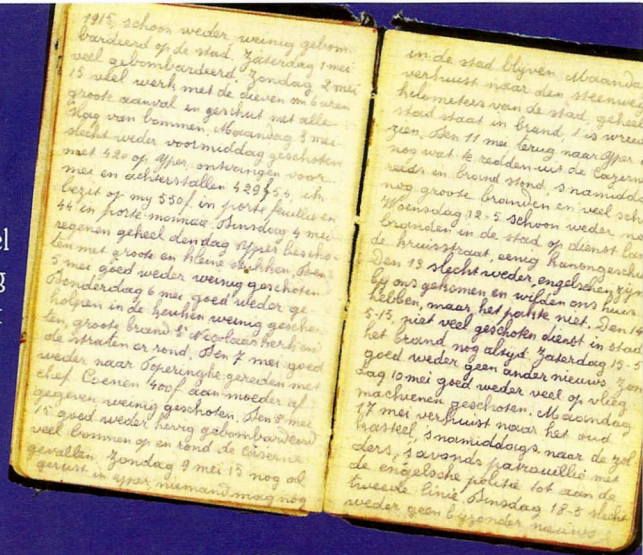 1915, schoon weder weinig gebom-
bardeerd op de stad. Zaterdag 1 mei
veel gebombardeerd. Zondag 2 mei
15 veel werk met de dieven om 6 uren
groote aanval en geschut met alle
slag van bommen. Maandag 3 mei
slecht weder voormiddag geschoten
met 420 op Yper. ontvangen voor
mei en achterstallen 429 f 54. ik
bezit op my 550 f. in porte feuille en
44 in porte-monnaie. Dinsdag 4 mei
regenen geheel den dag Yper bescho-
ten met groote en kleine
5 mei goed weder weinig geschoten
Donderdag 6 mei, goed weder ge
holpen in de keuken weinig gescho-
ten, groote brand St Nicolaas kerk en
de straten er rond. Den 7 mei, goed
weder naar Poperinghe gereden met
chef Coenen 400 f aan moeder af
gegeven weinig geschoten. Den 8 mei
15 goed weder hevig gebombardeerd
veel bommen op en rond de caserne
gevallen. Zondag 9 mei 15 nog al
gerust in yper, niemand mag nog
in de stad blijven. Maandag
verhuist naar den steenweg
kilometers van de stad, geheel
stad staat in brand, 't is wreed
zien. Den 11 mei terug naar Yper
nog wat te redden uit de Cazerne
reeds in brand stond. s'namiddags
nog groote branden en veel
Woensdag 12-5 schoon weder
branden in de stad op dienst
de kruisstraat, eenig kanongeschut
Den 13 slecht weder, engelschen zijn
bij ons gekomen en wilden ons huis
hebben, maar, het pakte niet. Den
5-15, niet veel geschoten dienst in stad
het brand nog altijd. Zaterdag 15-5
goed weder geen ander nieuws. Zon
dag 16 mei goed weder veel op vlieg
machienen geschoten. Maandag
17 mei verhuist naar het oud
kasteel, s'namiddags naar de zol
ders, s'avonds patrouillie met
de engelsche politie tot aan de
tweede linie. Dinsdag 18-5 slecht
weder geen byzonder nieuws